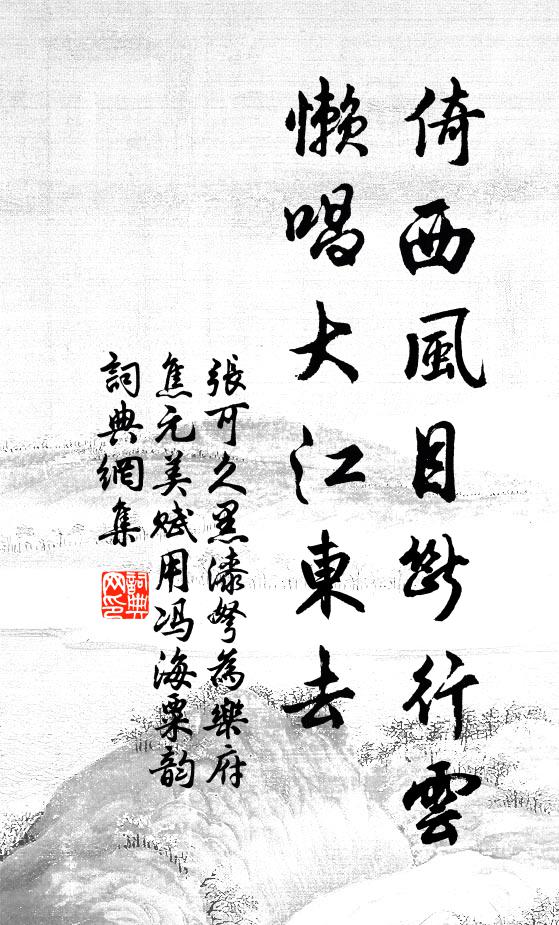 倚西風目斷行雲
懶唱大江東去
張可久黑漆弩為樂府
焦元美賦用馮海粟韵
詞典網集
詞典網印